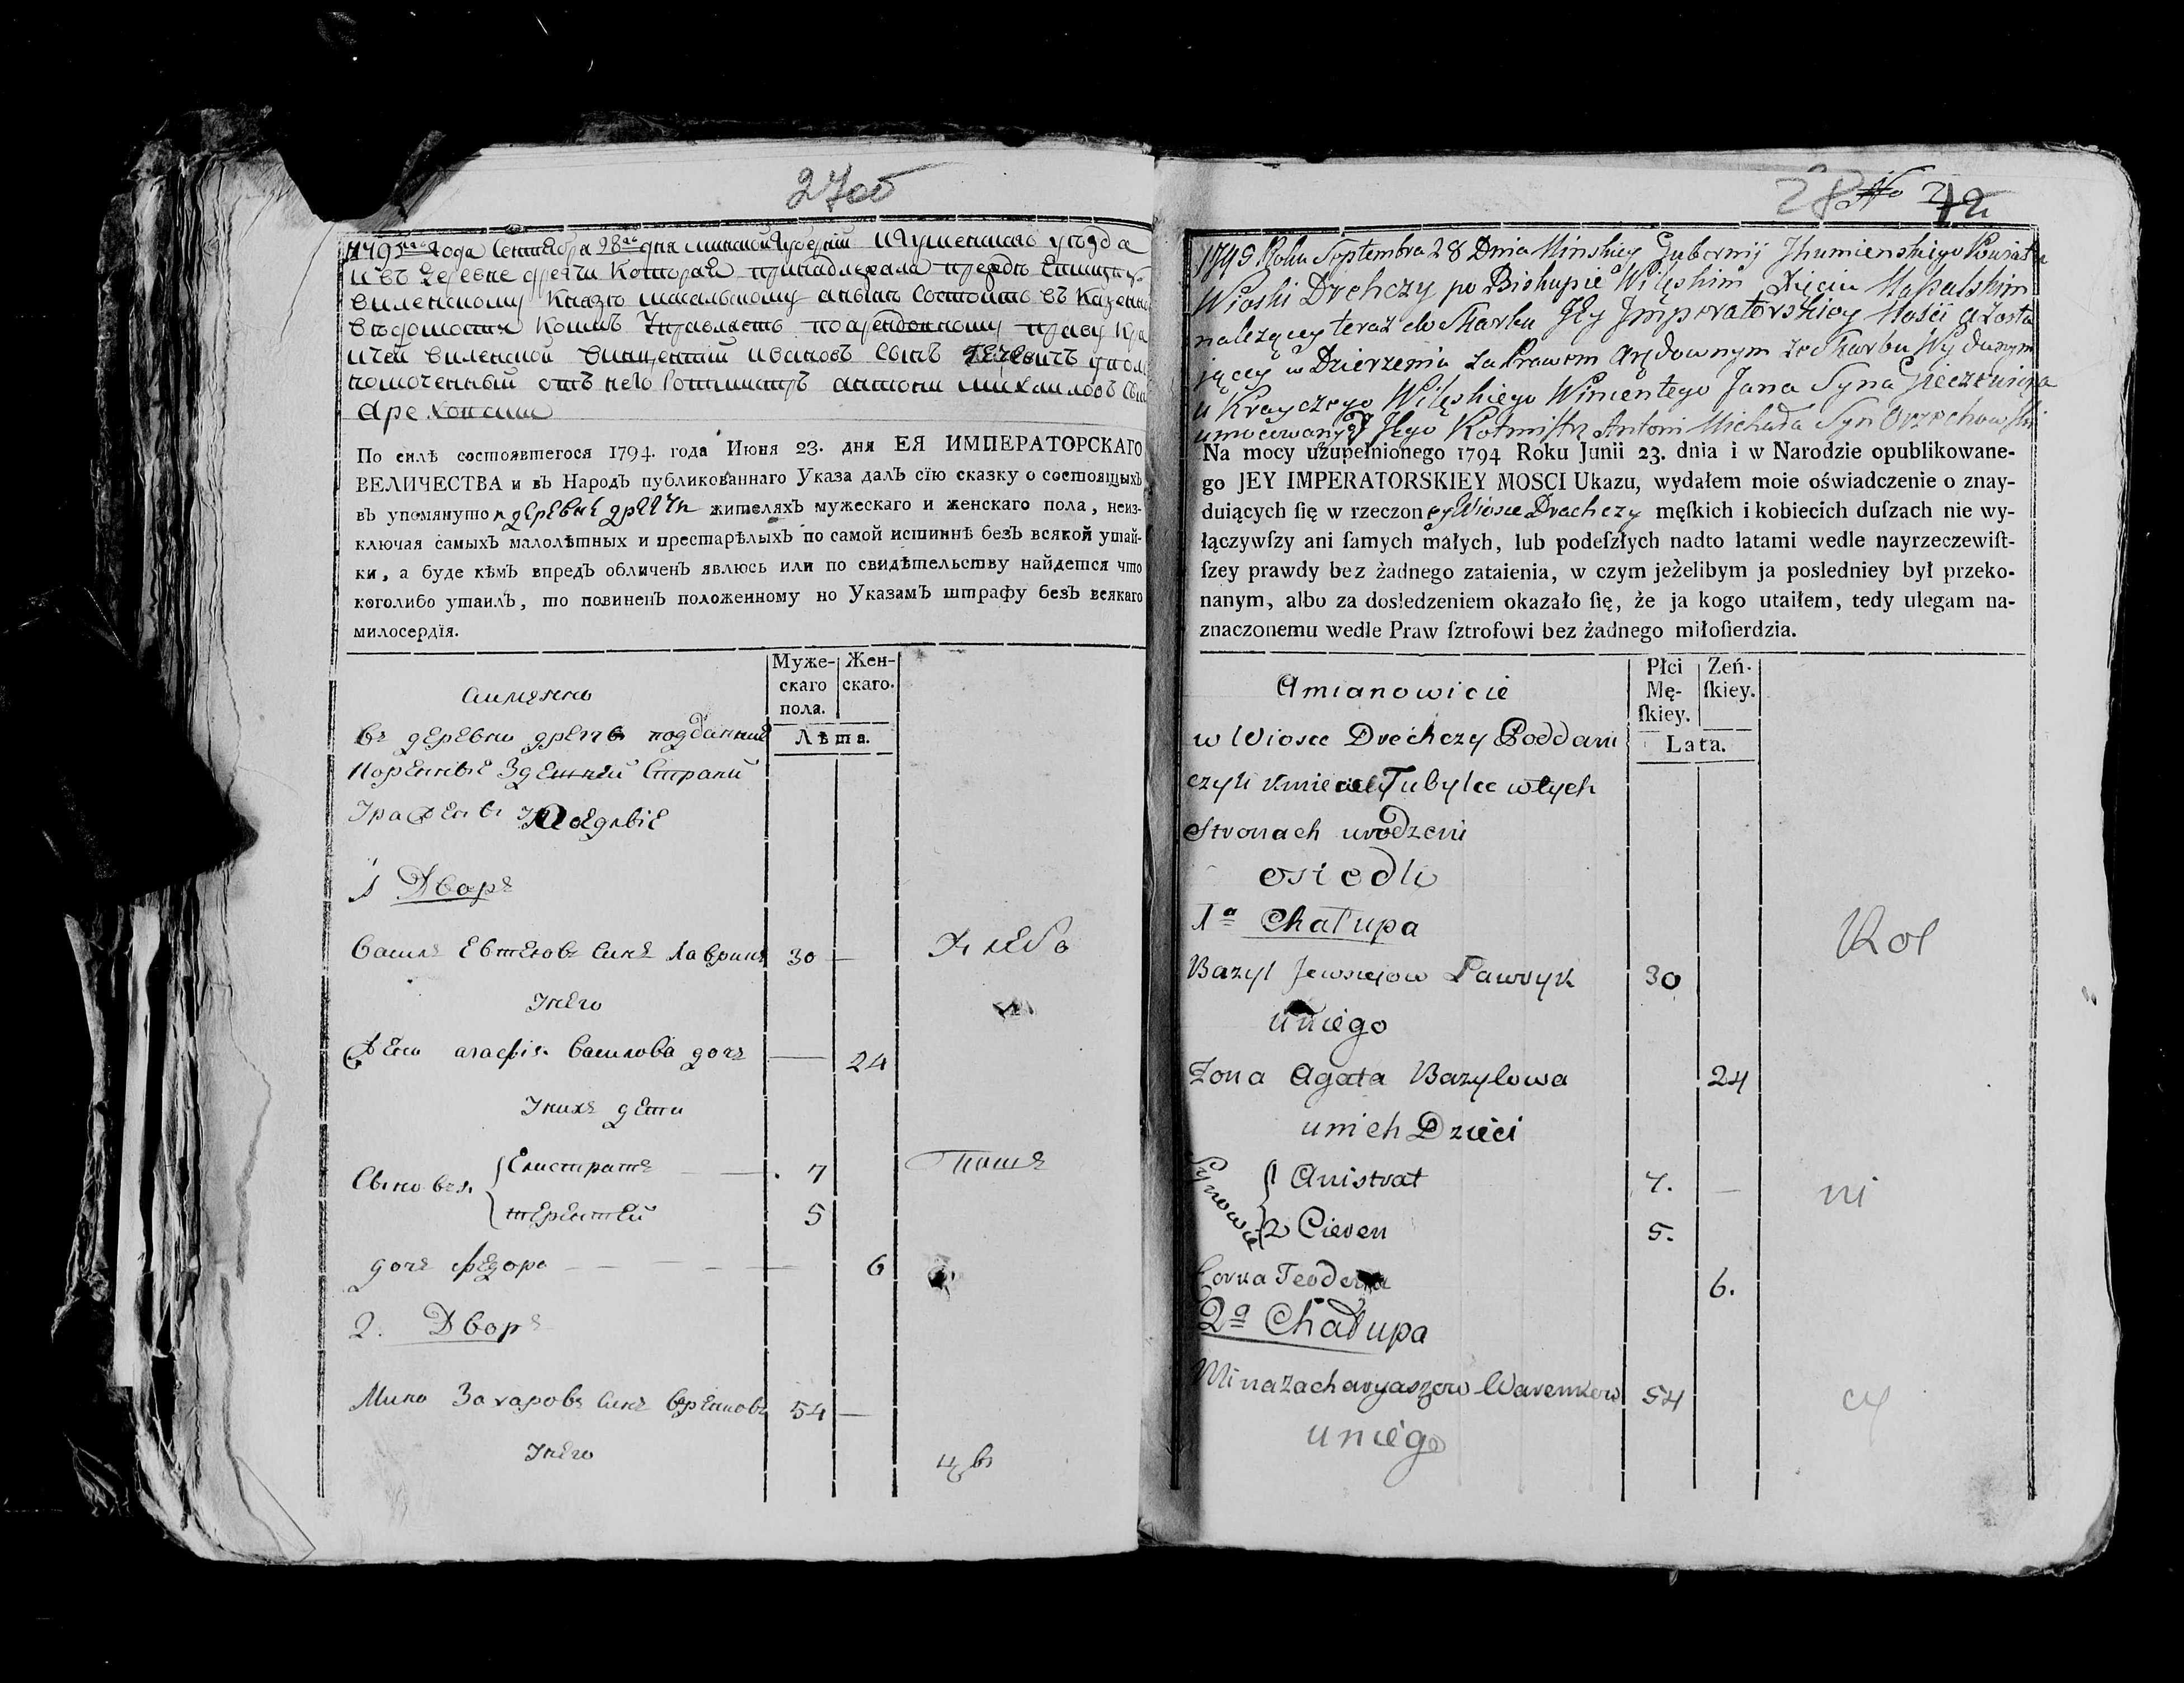 27об
1795го года Сентября 28го дня Минской Губернии Игуменскаго уезда
деревне Дречи Которая принадлежала прежде
Виленскому Князю Масальскому а нынѣ состоитъ въ Казенномъ
по арендовному праву
Виленской Викентий Ивановъ Сынъ Гечевичъ упол
номоченный отъ него Ротмистръ Антони Михаиловъ Сынъ
По силѣ состоявшегося 1794. года Июня 23. дня ЕЯ ИМПЕРАТОРСКАГО
ВЕЛИЧЕСТВА и въ Народъ публикованнаго Указа далъ сїю сказку о состоящыхъ
въ упомянутои деревне дречи жителяхъ мужескаго и женскаго пола, неиз-
ключая самыхъ малолѣтныхъ и престарѣлыхъ по самой истиннѣ безъ всякой утай-
ки, а буде кѣмъ впредъ обличенъ явлюсь или по свидѣтельству найдется что
коголибо утаилъ, то повиненъ положенному по Указамъ штрафу безъ всякаго
милосердїя.
Муже-скаго пола. Жен-скаго.
Лѣта.
аимянно
въ деревни дречи подданние
коренные здешней страни
1 Дворъ
Василъ Евсеевъ синъ Лаврикъ 30 —
Унего
Жена агафія Василова дочъ — 24
Унихъ дети
Сыновья { Елистратъ 7
терентей 5
дочъ федора 6
2. Дворъ
Мина Захаровъ синъ 54 —
Унего
28 No 72
1795 Roku Septembra 28 Dnia Minskiey Gubernij Jhumienskiego Powiatu
Wioski Drehczy po Biskupie Wileńskim Xięciu Massalskim
należącey teraz do Skarbu Jey Jmperatorskiey Mości a zosta
jącey w Dzierżeniu za Prawem Arędownym ze Skarbu Wydanym
u Krayczego Wileńskiego Wincentego Jana Syna Gieczewicza
umocowany od Jego Rotmistrz Antoni Michała Syn Orzechowski
Na mocy użupełnionego 1794 Roku Junii 23. dnia i w Narodzie opublikowane-
go JEY IMPERATORSKIEY MOSCI Ukazu, wydałem moie oświadczenie o znay-
duiących ſię w rzeczoney Wiosce Drechczy męſkich i kobiecich duſzach nie wy-
łączywſzy ani ſamych małych, lub podeſzłych nadto latami wedle nayrzeczewiſt-
ſzey prawdy bez żadnego zataienia, w czym jeżelibym ja posledniey był przeko-
nanym, albo za dosledzeniem okazało ſię, że ja kogo utaiłem, tedy ulegam na-
znaczonemu wedle Praw ſztrofowi bez żadnego miłoſierdzia.
Płci Mę-ſkiey. Zeń-ſkiey.
Lata.
Amianowicie
w Wiosce Drechczy Poddani
czyli kmiecie Tubylce w tych
Stronach urodzeni
osiedli
1a Chałupa
Bazyl Jewsiejow Ławryk 30
u niego
Zona Agata Bazylowa 24
u nich Dzieci
Synowie { 1 Anistrat 7. —
2 Cieren 5.
Corka Teodora 6.
2a Chałupa
Mina Zacharyaszow Waremkow 54
u niego